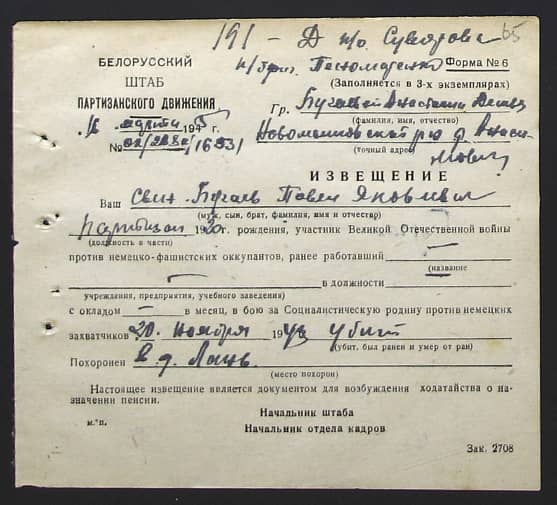 191 - Д п/о Суворова 65
БЕЛОРУССКИЙ
ШТАБ
ПАРТИЗАНСКОГО ДВИЖЕНИЯ
п/бриг. Пономаренко Форма № 6
(Заполняется в 3-х экземплярах)
Гр.
(фамилия, имя, отчество)
марта 1945 г.
№
(точный адрес)
ИЗВЕЩЕНИЕ
Ваш сын Бугаев Павел Яковлевич
(муж, сын, брат, фамилия, имя и отчество)
партизан 19 г. рождения, участник Великой Отечественной войны
(должность в части)
против немецко-фашистских оккупантов, ранее работавший —
(название
в должности
учреждения, предприятия, учебного заведения)
с окладом — в месяц, в бою за Социалистическую родину против немецких
захватчиков 20 ноября 1943 убит
(убит. был ранен и умер от ран)
Похоронен в д.
(место похорон)
Настоящее извещение является документом для возбуждения ходатайства о на-
значении пенсии.
Начальник штаба
м.п.
Начальник отдела кадров
Зак. 2708